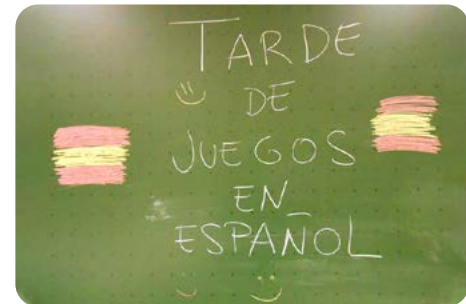 TARDE
DE
JUEGOS
EN
ESPAÑOL